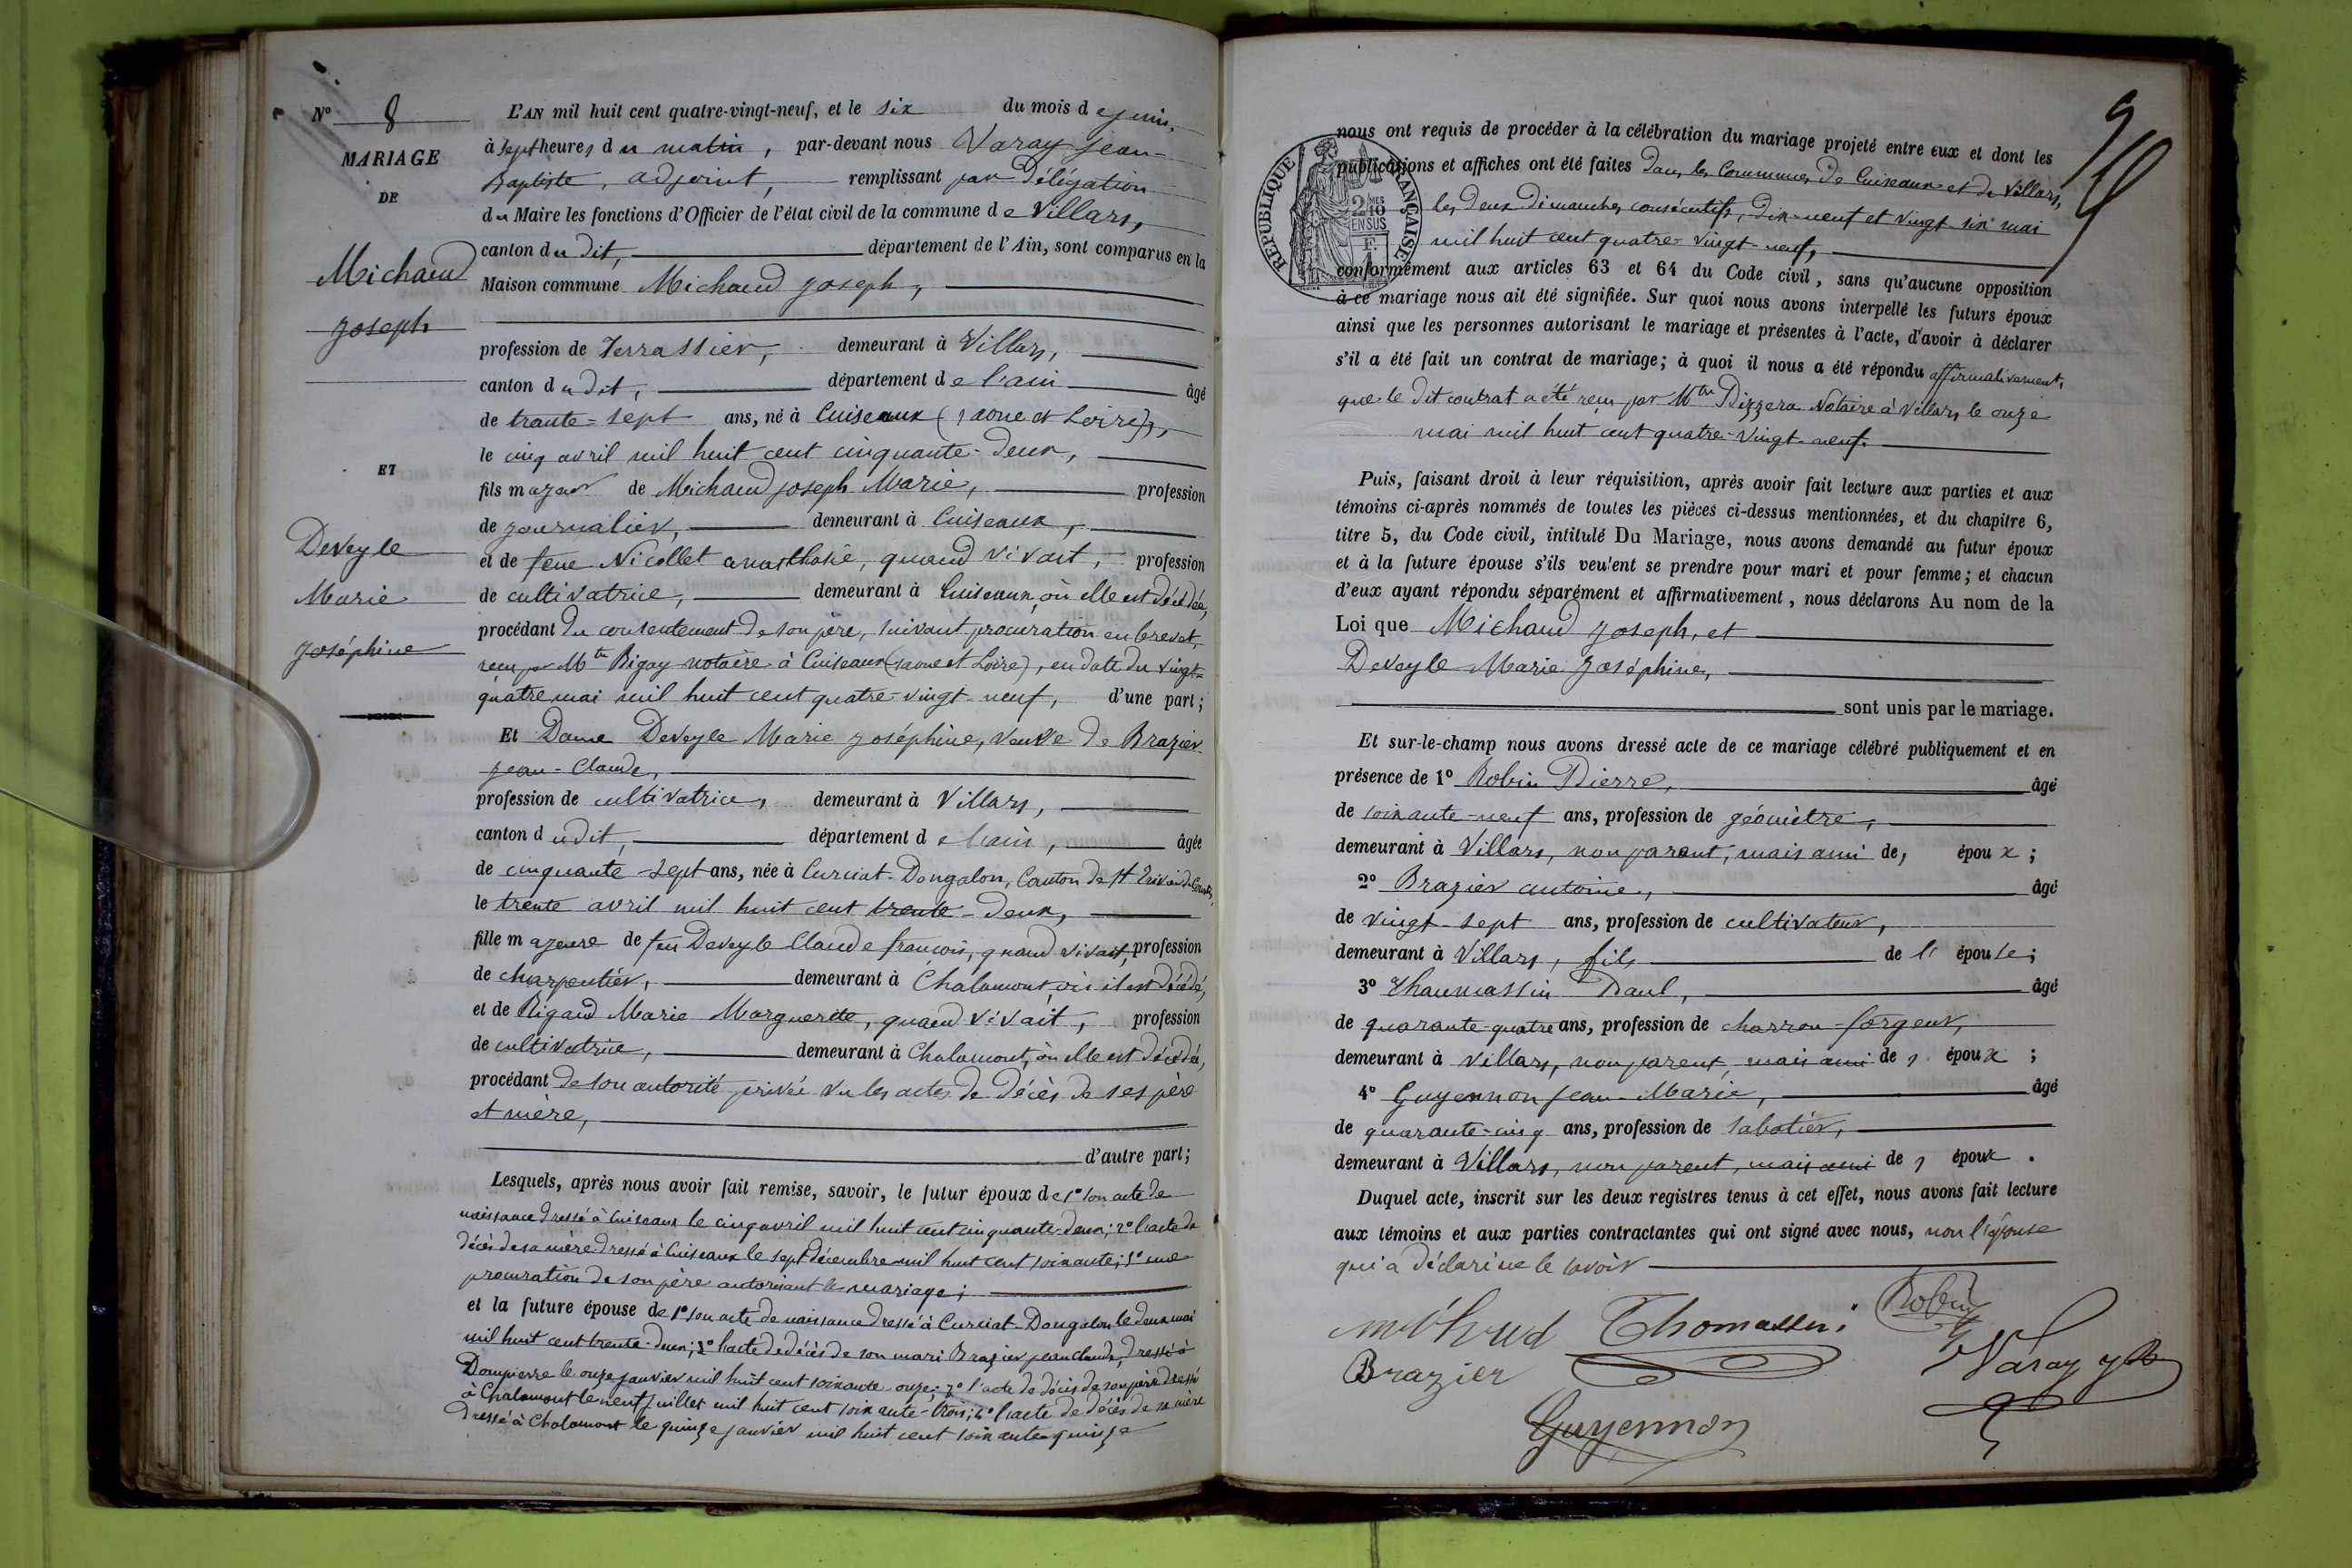 N° 8
MARIAGE
DE
Michaud
Joseph
ET
Deveyle
Marie
Joséphine
L'AN mil huit cent quatre-vingt-neuf, et le six du mois de juin,
à sept heures du matin, par-devant nous Varay Jean-
Baptiste, adjoint, remplissant par délégation
du Maire les fonctions d'Officier de l'état civil de la commune de Villars,
canton du dit, département de l'Ain, sont comparus en la
Maison commune Michaud Joseph,
profession de Terrassier, demeurant à Villars,
canton dudit, département de l'ain âgé
de trente-sept ans, né à Cuiseaux (saone et Loire),
le cinq avril mil huit cent cinquante-deux,
fils majeur de Michaud Joseph Marie, profession
de journalier, demeurant à Cuiseaux,
et de feue Nicollet anasthasie, quand vivait, profession
de cultivatrice, demeurant à Cuiseaux, où elle est décédée,
procédant du consentement de son père, suivant procuration en brevet,
reçu par Mtre Rigay notaire à Cuiseaux (saone et Loire), en date du vingt-
quatre mai mil huit cent quatre-vingt-neuf, d'une part;
Et Dame Deveyle Marie Joséphine, veuve de Brazier
Jean-Claude,
profession de cultivatrice, demeurant à Villars,
canton dudit, département de l'ain, âgée
de cinquante-sept ans, née à Curciat-Dongalon, Canton de St Trivier de Courtes,
le trente avril mil huit cent trente-deux,
fille majeure de feu Deveyle Claude françois, quand vivait, profession
de charpentier, demeurant à Chalamont, où il est décédé,
et de Rigaud Marie Marguerite, quand vivait, profession
de cultivatrice, demeurant à Chalamont, où elle est décédée,
procédant de son autorité privée vu les actes de décès de ses père
et mère,
d'autre part;
Lesquels, après nous avoir fait remise, savoir, le futur époux de 1° son acte de
naissance dressé à Cuiseaux le cinq avril mil huit cent cinquante-deux; 2° l'acte de
décès de sa mère dressé à Cuiseaux le sept décembre mil huit cent soixante; 3° une
procuration de son père autorisant le mariage;
et la future épouse de 1° son acte de naissance dressé à Curciat-Dongalon le deux mai
mil huit cent trente-deux; 2° l'acte de décès de son mari Brazier jean claude, dressé à
Dompierre le onze janvier mil huit cent soixante-onze; 3° l'acte de décès de son père dressé
à Chalamont le neuf juillet mil huit cent soixante-trois; 4° l'acte de décès de sa mère
dressé à Chalamont le quinze janvier mil huit cent soixante-quinze
REPUBLIQUE FRANÇAISE
2/10 MES
EN SUS
nous ont requis de procéder à la célébration du mariage projeté entre eux et dont les
publications et affiches ont été faites dans les Communes de Cuiseaux et de Villars,
les deux dimanches consécutifs, dix-neuf et vingt-six mai
mil huit cent quatre-vingt-neuf,
conformément aux articles 63 et 64 du Code civil, sans qu'aucune opposition
à ce mariage nous ait été signifiée. Sur quoi nous avons interpellé les futurs époux
ainsi que les personnes autorisant le mariage et présentes à l'acte, d'avoir à déclarer
s'il a été fait un contrat de mariage; à quoi il nous a été répondu affirmativement,
que le dit contrat a été reçu par Mtre Pizzera Notaire à Villars, le onze
mai mil huit cent quatre-vingt-neuf.
Puis, faisant droit à leur réquisition, après avoir fait lecture aux parties et aux
témoins ci-après nommés de toutes les pièces ci-dessus mentionnées, et du chapitre 6,
titre 5, du Code civil, intitulé Du Mariage, nous avons demandé au futur époux
et à la future épouse s'ils veulent se prendre pour mari et pour femme; et chacun
d'eux ayant répondu séparément et affirmativement, nous déclarons Au nom de la
Loi que Michaud Joseph, et
Deveyle Marie Joséphine,
sont unis par le mariage.
Et sur-le-champ nous avons dressé acte de ce mariage célébré publiquement et en
présence de 1° Robin Pierre, âgé
de soixante-neuf ans, profession de géomètre,
demeurant à Villars, non parent, mais ami des époux;
2° Brazier antoine, âgé
de vingt-sept ans, profession de cultivateur,
demeurant à Villars, fils de l'épouse;
3° Thaumassin Paul, âgé
de quarante-quatre ans, profession de charron-forgeur,
demeurant à Villars, non parent, mais ami des époux;
4° Guyennon Jean-Marie, âgé
de quarante-cinq ans, profession de sabotier,
demeurant à Villars, non parent, mais ami des époux.
Duquel acte, inscrit sur les deux registres tenus à cet effet, nous avons fait lecture
aux témoins et aux parties contractantes qui ont signé avec nous, non l'épouse
qui a déclaré ne le savoir
Thomassin Robin
Brazier Varay JB
Guyennon